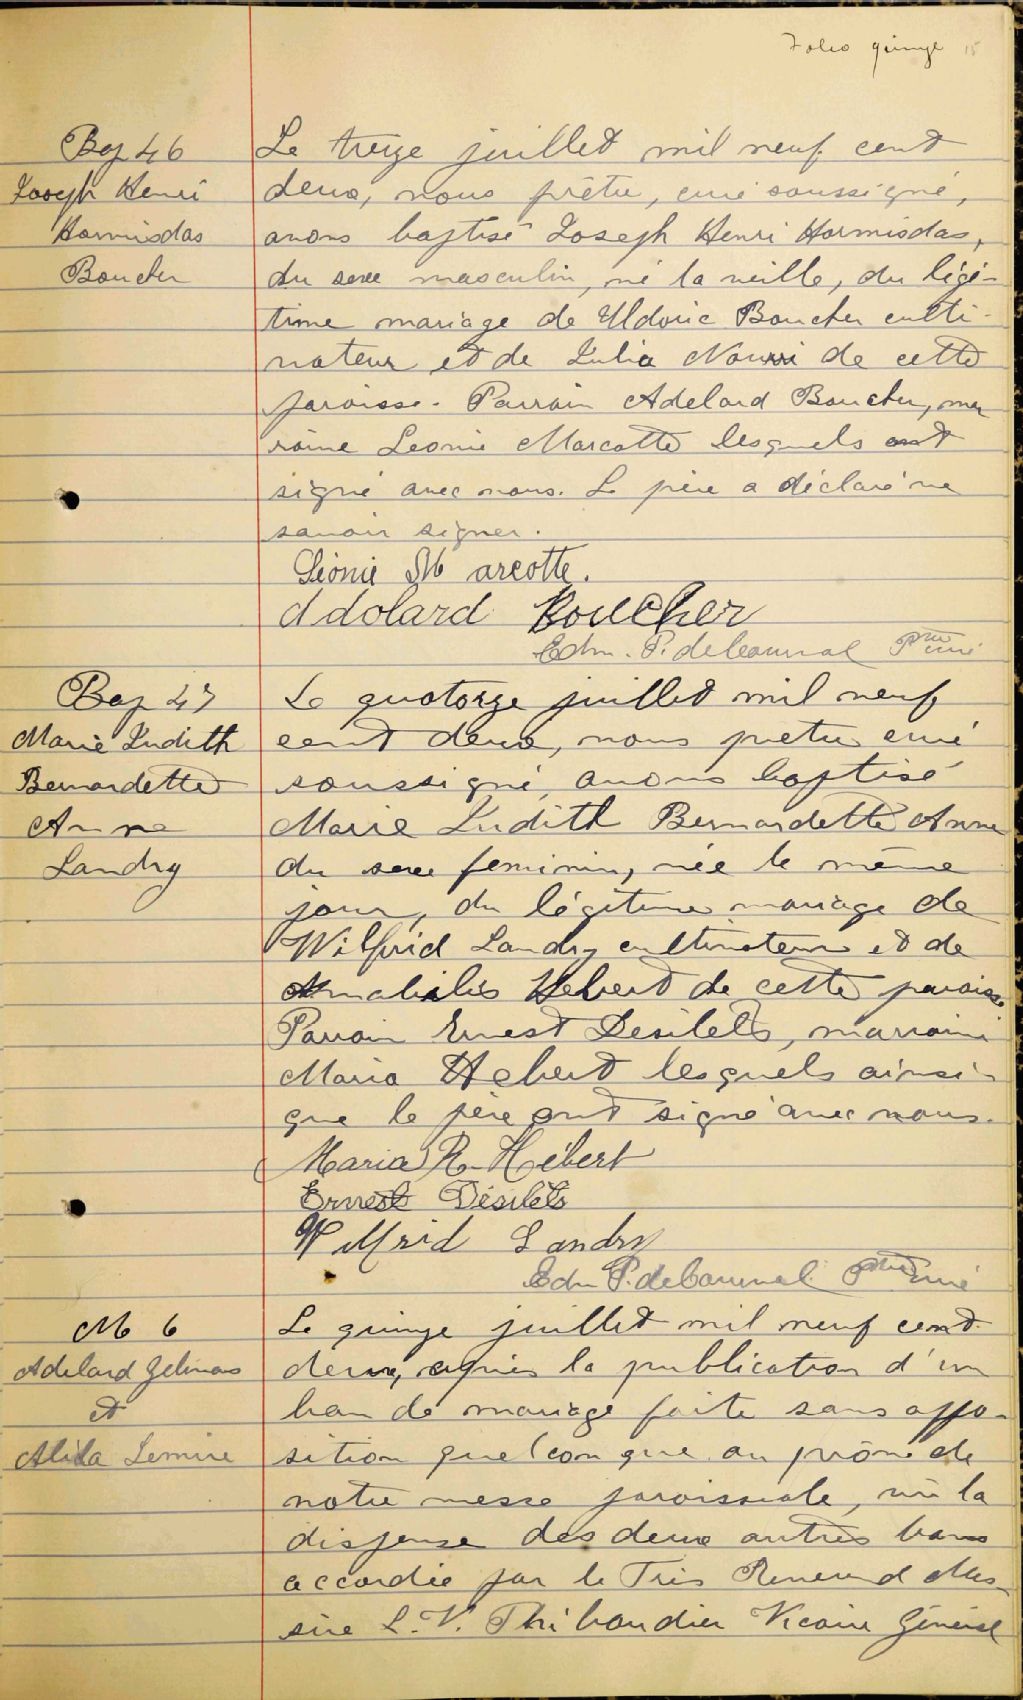 Folio quinze 15
Bap 46
Joseph Henri
Hormisdas
Boucher
Le treize juillet mil neuf cent
deux, nous prêtre, curé soussigné,
avons baptisé Joseph Henri Hormisdas,
du sexe masculin, né la veille, du légi-
time mariage de Uldoric Boucher culti-
vateur et de Julia Nourri de cette
paroisse. Parrain Adelard Boucher, mar
raine Leonie Marcotte lesquels ont
signé avec nous. Le père a déclaré ne
savoir signer.
Léonie Marcotte.
Adolard Boucher
Edm. P. de Courval Ptre curé
Bap 47
Marie Judith
Bernardette
Anne
Landry
Le quatorze juillet mil neuf
cent deux, nous prêtre curé
soussigné, avons baptisé
Marie Judith Bernardette Anne
du sexe feminin, née le même
jour, du légitime mariage de
Wilfrid Landry cultivateur et de
Hebert de cette paroisse
Parrain Ernest Desilets, marraine
Maria Hebert lesquels ainsi
que le père ont signé avec nous.
Maria R. Hébert
Ernest Désilets
Wilfrid Landry
Edm P. de Courval Ptre curé
M 6
Adelard Gelinas
et
Alida Lemire
Le quinze juillet mil neuf cent
deux, après la publication d'un
ban de mariage faite sans oppo-
sition quelconque au prône de
notre messe paroissiale, vu la
dispense des deux autres bans
accordée par le Très Reverend Mes-
sire L. V. Thibaudier Vicaire Général